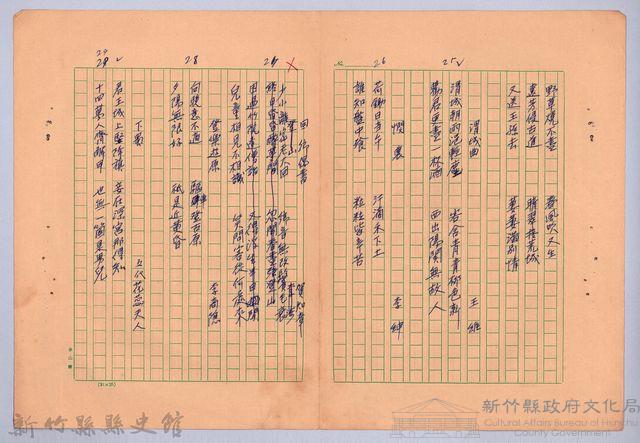 野草燒不盡　春風吹又生
遠芳侵古道　晴翠接荒城
又送王孫去　萋萋滿別情
25
渭城曲　王維
渭城朝雨浥輕塵　客舍青青柳色新
勸君更盡一杯酒　西出陽關無故人
26
憫農　李紳
荷鋤日當午　汗滴禾下土
誰知盤中飧　粒粒皆辛苦
回鄉偶書　賀知章
少小離家老大回
終日昏昏醉夢間　忽聞春盡強登山
因過竹院逢僧話　又得浮生半日閒
兒童相見不相識　笑問客從何處來
28
登樂遊原　李商隱
向晚意不適　驅車登古原
夕陽無限好　祇是近黃昏
29
五代花蕊夫人
君王城上豎降旗　妾在深宮那得知
十四萬人齊解甲　也無一個是男兒
(25×25)
新竹縣縣史館
新竹縣政府文化局
Cultural Affairs Bureau of Hsinchu
County Government